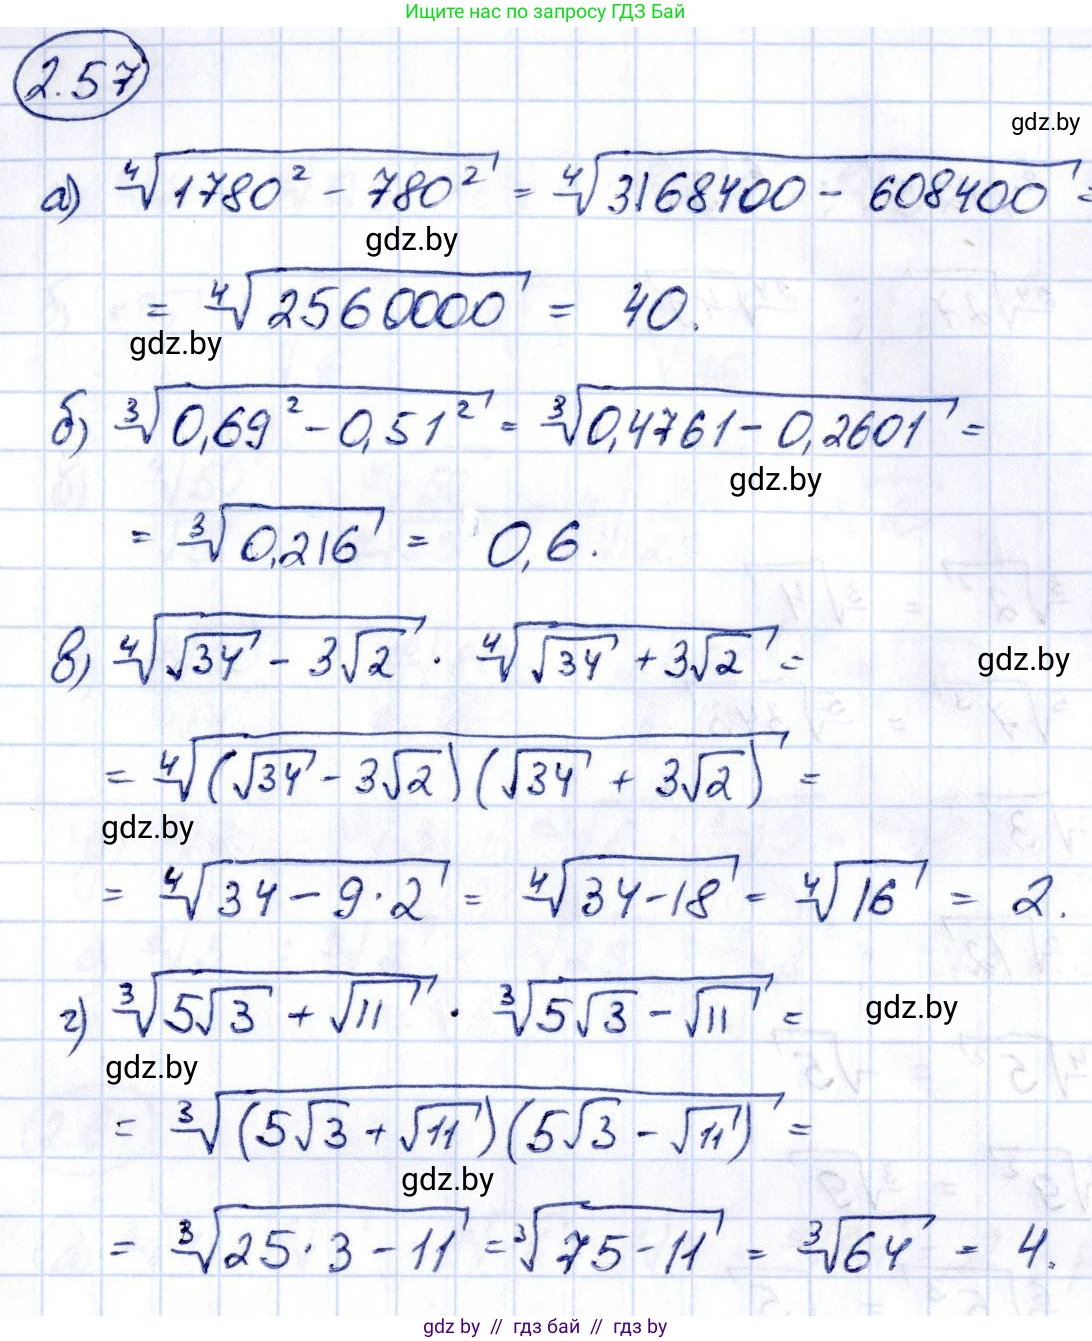 Ищите нас по запросу ГДЗ Бай
2.57
gdz.by
а) ⁴√(1780² - 780²) = ⁴√(3168400 - 608400) =
gdz.by
= ⁴√2560000 = 40.
gdz.by
б) ³√(0,69² - 0,51²) = ³√(0,4761 - 0,2601) =
gdz.by
= ³√0,216 = 0,6.
в) ⁴√(√34 - 3√2) · ⁴√(√34 + 3√2) =
gdz.by
= ⁴√((√34 - 3√2)(√34 + 3√2)) =
gdz.by
= ⁴√(34 - 9·2) = ⁴√(34-18) = ⁴√16 = 2.
г) ³√(5√3 + √11) · ³√(5√3 - √11) =
gdz.by
gdz.by
= ³√((5√3 + √11)(5√3 - √11)) =
gdz.by
= ³√(25·3 - 11) = ³√(75 - 11) = ³√64 = 4.
gdz by // гдз бай // gdz by